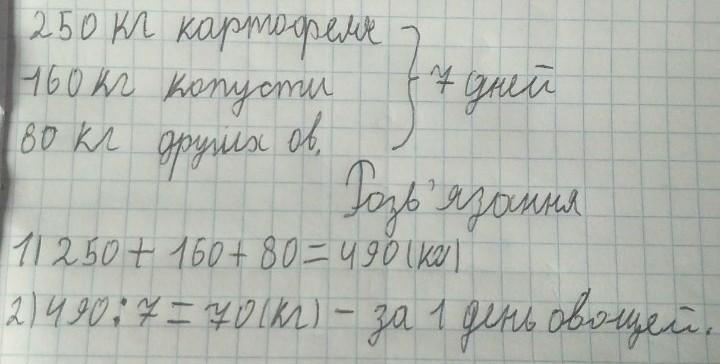 250 кг картофеля
160 кг копусти } 7 дней
80 кг других ов.
Розв'язання
1) 250 + 160 + 80 = 490 (кг)
2) 490 : 7 = 70 (кг) - за 1 день овощей.